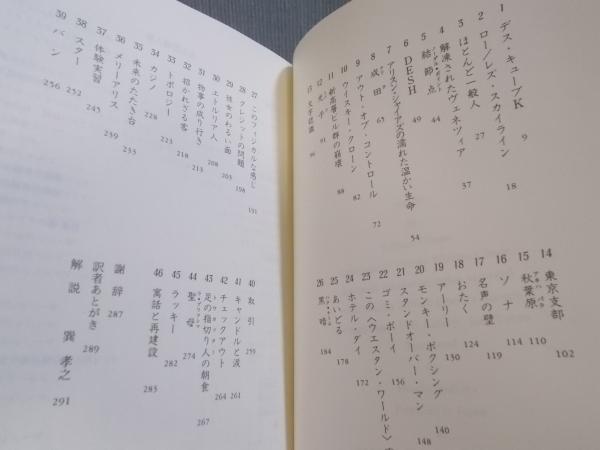 1 デス・キューブK 9
2 ロー/レズ・スカイライン 18
3 ほとんど一般人 27
4 解凍されたヴェネツィア 37
5 結節点 44
6 DESH 49
7 アリスン・シャイアズの濡れた温かい生命 54
8 成田 65
9 アウト・オブ・コントロール 72
10 ウイスキー・クローン 82
11 新高層ビル群の崩壊 88
12 光子
13 文字認識
14 東京支部 102
15 秋葉原 110
16 ソナ 114
17 名声の壁 119
18 おたく 124
19 アーリー 130
20 モンキー・ボクシング 140
21 スタンドオーバー・マン 148
22 ゴミ・ボーイ 156
23 この〈ウエスタン・ワールド〉
24 ホテル・ダイ 172
25 あいどる 178
26 黒暗 184
27 このフィジカルな感じ 191
28 クレジットの問題 198
29 彼女のわるい面 204
30 エトルリア人 208
31 物事の成り行き 213
32 招かれざる客 218
33 トポロジー
34 カジノ 228
35 未来のたたき台 233
36 メリーアリス 239
37 体験実習 245
38 スター 252
39 バン 256
40 取引 259
41 キャンドルと涙 261
42 チェックアウト 264
43 足の指切り人の朝食 267
44 聖母 274
45 ラッキー 282
46 寓話と再建設 283
謝辞 287
訳者あとがき 289
解説 巽孝之 291